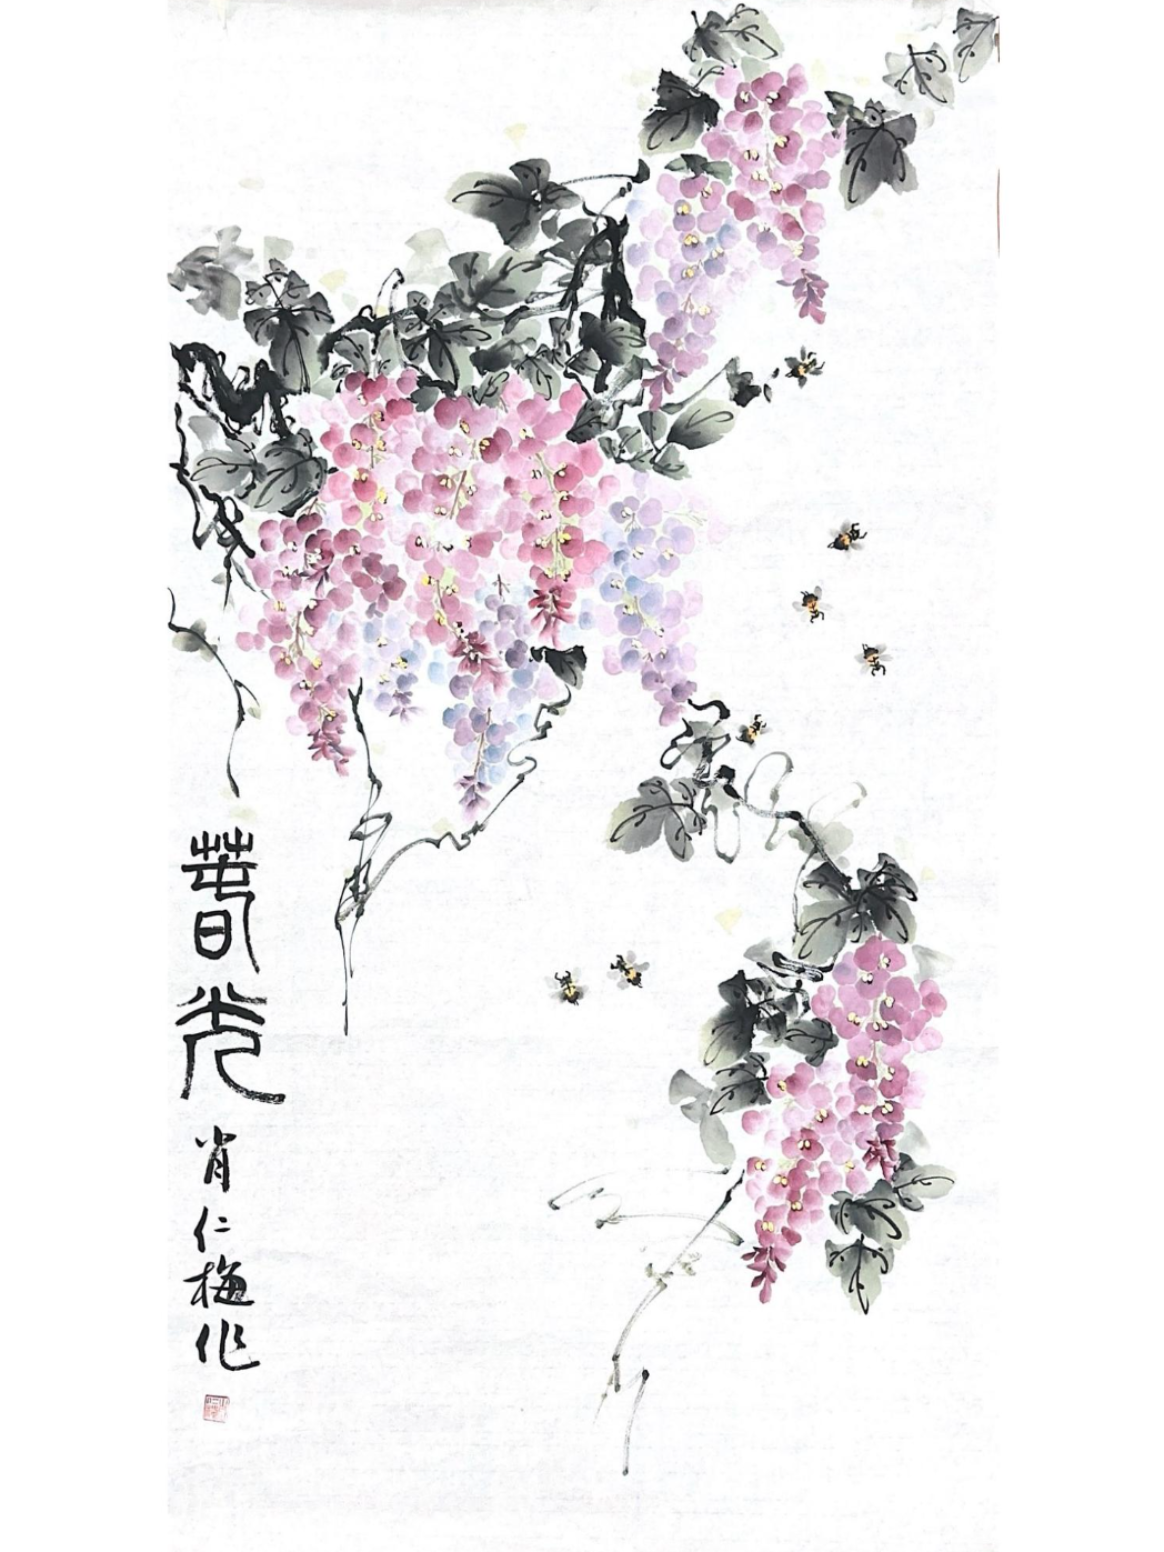 春光
肖仁梅作